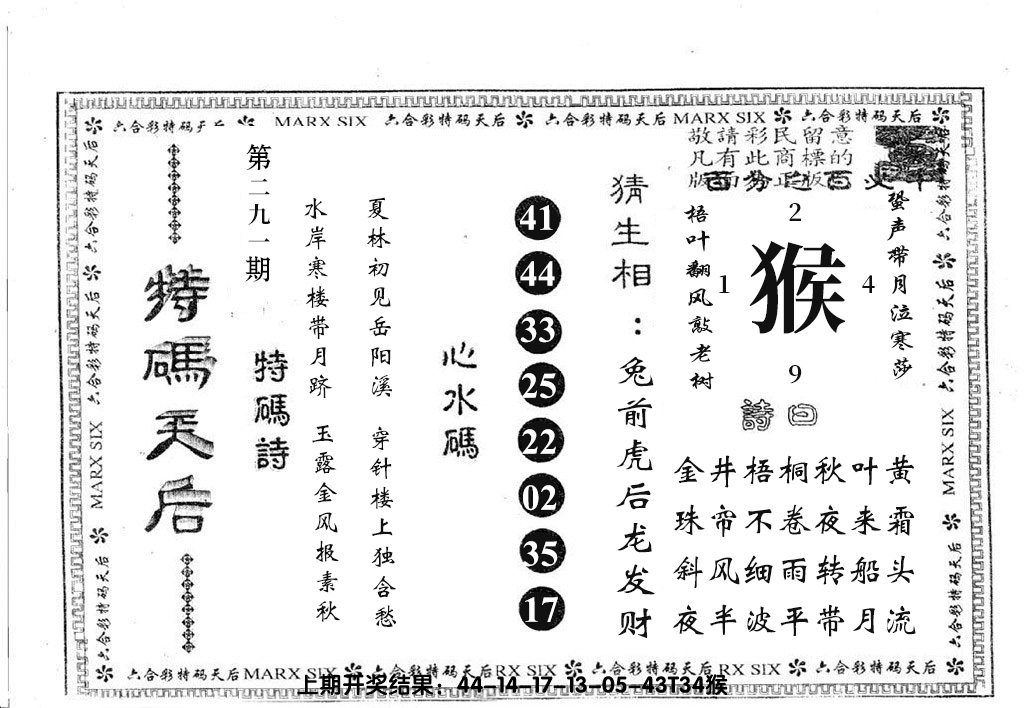 六合彩特码天后 MARX SIX 六合彩特码天后 六合彩特码天后 MARX SIX 六合彩特码天后
敬請彩民留意
凡有此商標的
版面為正版
蛩声带月泣寒莎
2
1 猴 4
9
梧叶翻风敲老树
詩曰
金井梧桐秋叶黄
珠帘不卷夜来霜
斜风细雨转船头
夜半波平带月流
猜生相：兔前虎后龙发财
41
44
33
25
22
02
35
17
心水碼
夏林初见岳阳溪 穿针楼上独含愁
水岸寒楼带月跻 玉露金风报素秋
特碼詩
第二九一期
特碼天后
六合彩特码天后 MARX SIX 六合彩特码天后
六合彩特码天后 六合彩特码天后 MARX SIX 六合彩特码天后
六合彩特码天后MARX SIX 六合彩特码天后RX SIX 六合彩特码天后RX SIX 六合彩特码天后
上期开奖结果：44-14-17-13-05-43T34猴